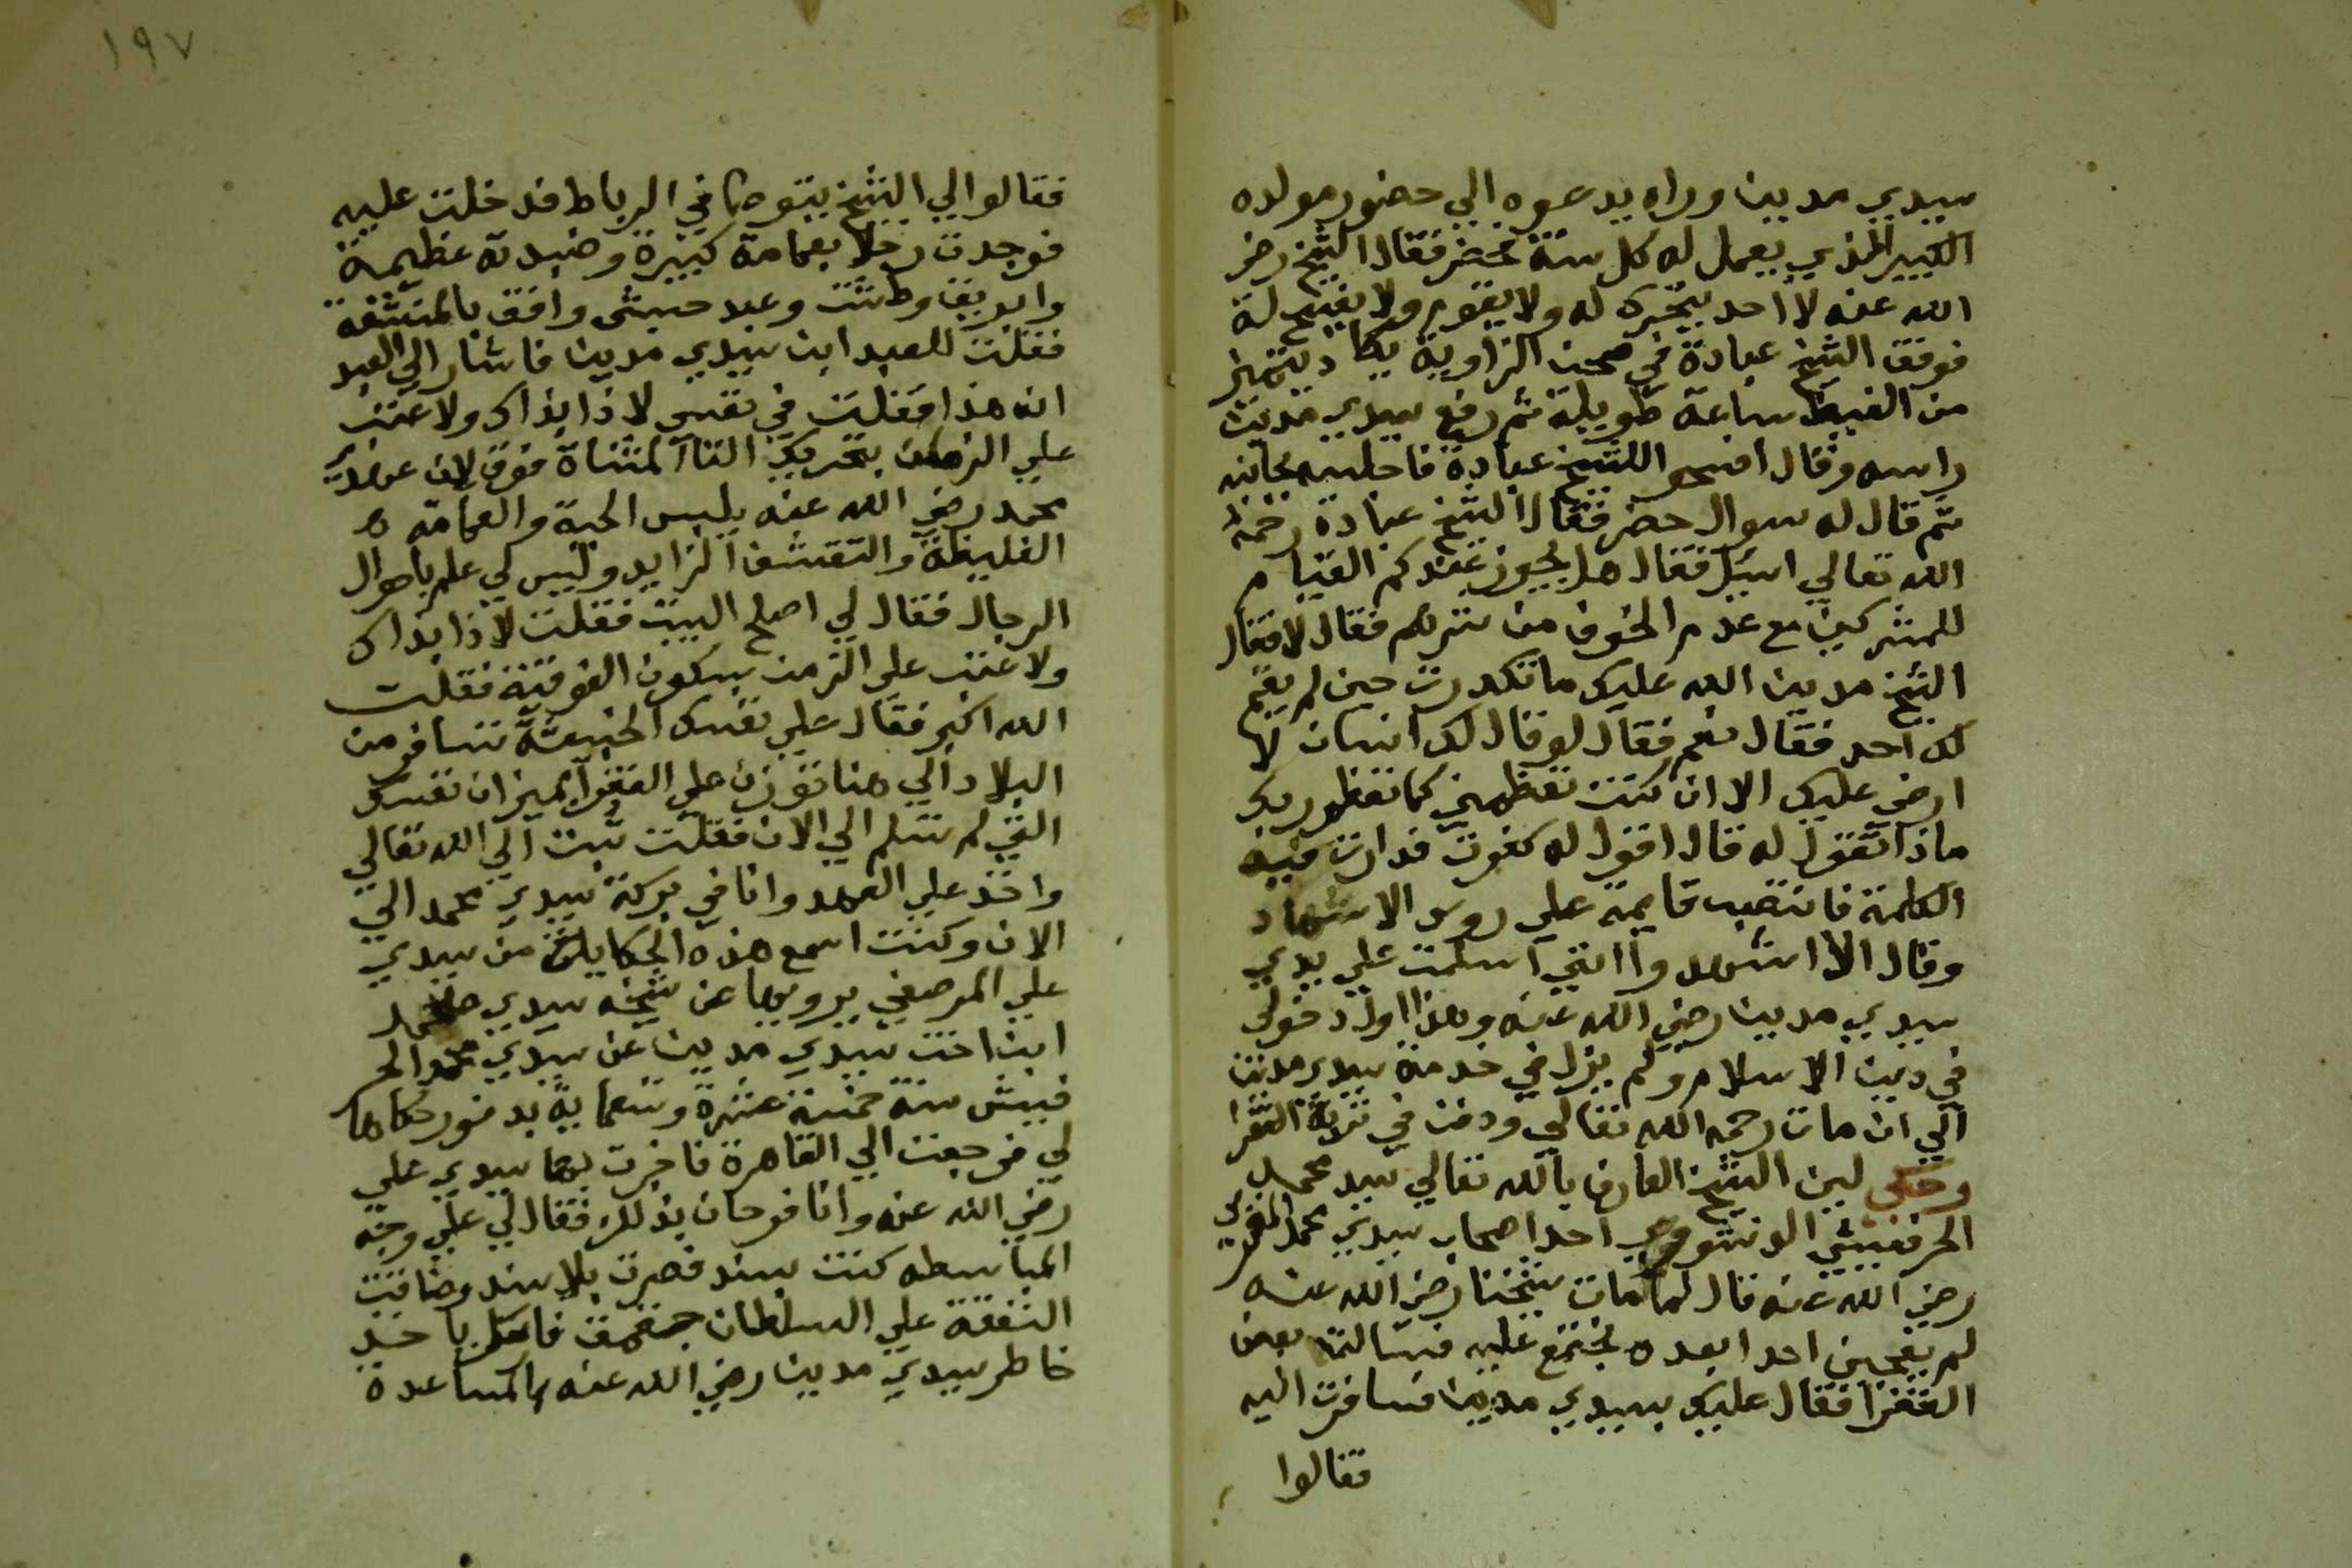 سيدي مدين وراه يدعوه الي حضور مولده
الكبير الذي يعمل له كل سنة فحضر فقال الشيخ رضي
الله عنه لا احد يتحرك له ولا يقوم ولا يفسح له
فوقف الشيخ عبادة في صحن الزاوية يكاد يتميز
من الغيظ ساعة طويلة ثم رفع سيدي مدين
راسه وقال افسحو اللشيخ عبادة فاجلسه بجانبه
ثم قال له سوال حضر فقال الشيخ عبادة رحمه
الله تعالي اسيل فقال هل يجوز عندكم القيام
للمشركين مع عدم الخوف من شرهم فقال لا فقال
الشيخ مدين الله عليك ما تكدرت حين لم يقم
لك احد فقال نعم فقال لو قال لك انسان لا
ارضي عليك الا ان كنت تعظمني كما تعظم ربك
ماذا تقول له قال اقول له كفرت فدارت فيه
الكلمة فانتصب قايمه علي روس الاشهاد
وقال الا اشهد وا انني اسلمت علي يدي
سيدي مدين رضي الله عنه وهذا اول دخولي
في دين الاسلام ولم يزل في خدمة سيدي مدين
الي ان مات رحمه الله تعالي ودفن في تربة الفقرا
وحكي لين الشيخ العارف بالله تعالي سيد محمد
الحرفيشي الدنوشوهي احد اصحاب سيدي محمد الغمري
رضي الله عنه قال لما مات شيخنا رضي الله عنه
لم يعجبني احدا بعده نجتمع عليه فسالت بعض
الفقرا فقال عليك بسيدي مدين فسافرت اليه
فقالوا
١٩٧
فقالوا لي الشيخ يتوضا في الرباط فدخلت عليه
فوجدت رجلا بعمامة كبيرة وجبة عظيمة
وابريق وطشت وعبد حبشي واقف بالمنشفة
فقلت للعبد اين سيدي مدين فاشار الي العبد
انه هذا فقلت في نفسي لا ذا بذاك ولا عتب
علي الزمن بتحريك التا المثناة فوق لان عهدي
محمد رضي الله عنه يلبس الجبة والعمامة
الغليظة والتقشف الزايد وليس لي علم باحوال
الرجال فقال لي اصلح البيت فقلت لا ذا بذاك
ولا عتب علي الزمن بسكون الفوقية فقلت
الله اكبر فقال علي نفسك الخبيثة تسافر من
البلاد الي هنا تزن علي الفقرا بميزان نفسك
التي لم تسلم الي الان فقلت تبت الي الله تعالي
واخذ علي العهد وانا في بركة سيدي محمد الي
الان وكنت اسمع هذه الحكاية من سيدي
علي المرصفي يرويها عن شيخه سيدي محمد
ابن اخت سيدي مدين عن سيدي محمد الحر
فيشي سنة خمسة عشرة وتسعماية بدمنور حكاها
لي فرجعت الي القاهرة فاخبرت بها سيدي علي
رضي الله عنه وانا فرحان بذلك فقال لي علي وجه
المباسطه كنت بسند فصرت بلا سند وضاقت
النفقة علي السلطان جقمق فارسل ياخذ
خاطر سيدي مدين رضي الله عنه بالمساعدة